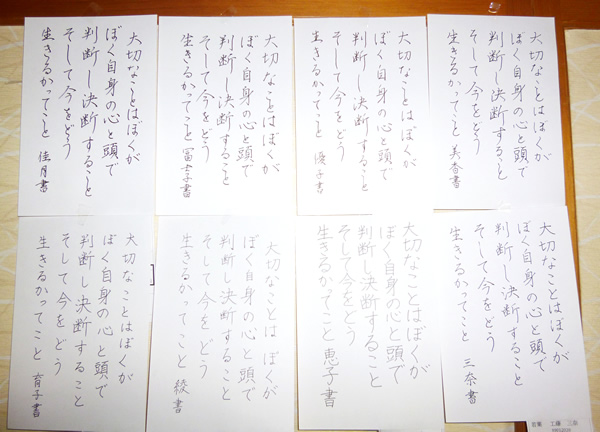 大切なことはぼくが
ぼく自身の心と頭で
判断し決断すること
そして今をどう
生きるかってこと 美香書
大切なことはぼくが
ぼく自身の心と頭で
判断し決断すること
そして今をどう
生きるかってこと 優子書
大切なことはぼくが
ぼく自身の心と頭で
判断し決断すること
そして今をどう
生きるかってこと
大切なことはぼくが
ぼく自身の心と頭で
判断し決断すること
そして今をどう
生きるかってこと 佳月書
大切なことはぼくが
ぼく自身の心と頭で
判断し決断すること
そして今をどう
生きるかってこと 三奈書
大切なことはぼくが
ぼく自身の心と頭で
判断し決断すること
そして今をどう
生きるかってこと 恵子書
大切なことはぼくが
ぼく自身の心と頭で
判断し決断すること
そして今をどう
生きるかってこと 綾書
大切なことはぼくが
ぼく自身の心と頭で
判断し決断すること
そして今をどう
生きるかってこと 育子書